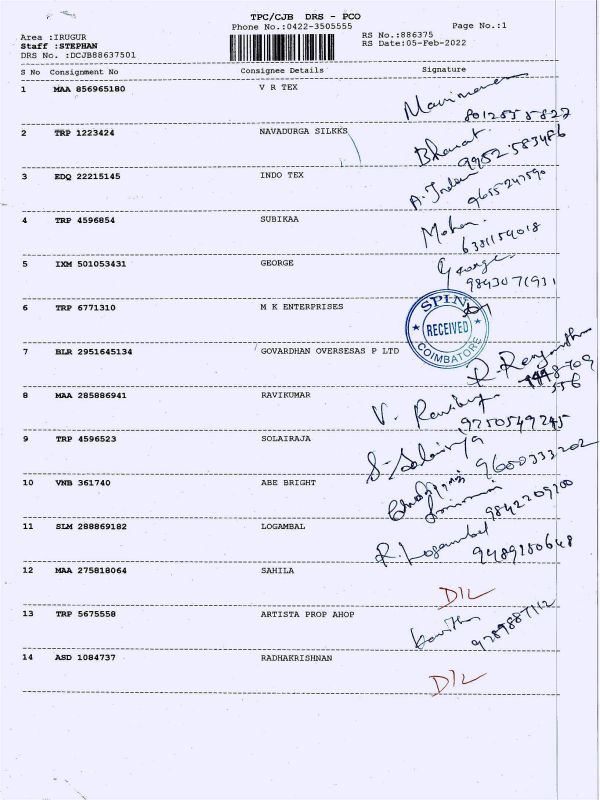 TPC/CJB DRS - PCO
Phone No.:0422-3505555
Page No.:1
Area :IRUGUR
Staff :STEPHAN
DRS No. :DCJB88637501
RS No.:886375
RS Date:05-Feb-2022
S No Consignment No Consignee Details Signature
1 MAA 856965180 V R TEX
8012555822
2 TRP 1223424 NAVADURGA SILKKS Bharat
9952583486
3 EDQ 22215145 INDO TEX
9655247590
4 TRP 4596854 SUBIKAA Mohan.
6381154018
5 IXM 501053431 GEORGE George
9843071931
6 TRP 6771310 M K ENTERPRISES
SPIN
RECEIVED
COIMBATORE
7 BLR 2951645134 GOVARDHAN OVERSESAS P LTD
556
8 MAA 285886941 RAVIKUMAR V. Ravikumar
9250549245
9 TRP 4596523 SOLAIRAJA S. Solairaja
9600333202
10 VNB 361740 ABE BRIGHT
9842209200
11 SLM 288869182 LOGAMBAL R. Logambal
9489180648
12 MAA 275818064 SAHILA D/L
13 TRP 5675558 ARTISTA PROP AHOP Kavitha
9789887112
14 ASD 1084737 RADHAKRISHNAN D/L